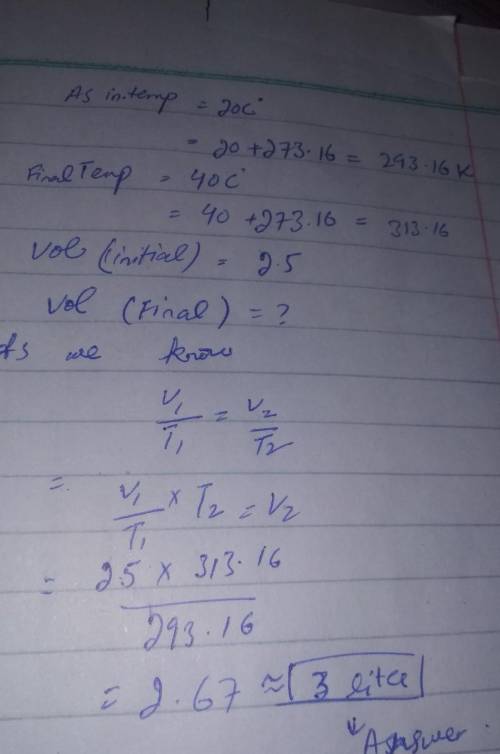 As in.temp = 20C°
= 20 + 273.16 = 293.16 K
Final Temp = 40C°
= 40 + 273.16 = 313.16
Vol (initial) = 2.5
Vol (Final) = ?
As we know
V₁/T₁ = V₂/T₂
= V₁/T₁ × T₂ = V₂
= 2.5 × 313.16 / 293.16
= 2.67 ≈ 3 litre
Answer